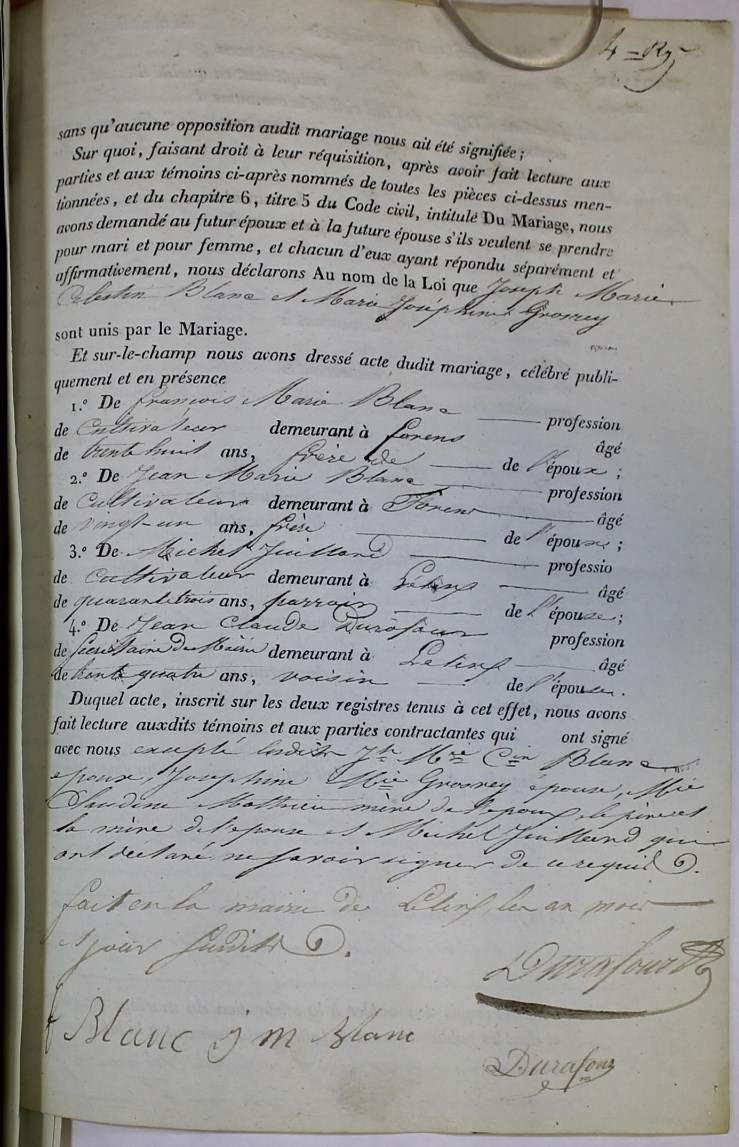 sans qu'aucune opposition audit mariage nous ait été signifiée;
Sur quoi, faisant droit à leur réquisition, après avoir fait lecture aux
parties et aux témoins ci-après nommés de toutes les pièces ci-dessus men-
tionnées, et du chapitre 6, titre 5 du Code civil, intitulé Du Mariage, nous
avons demandé au futur époux et à la future épouse s'ils veulent se prendre
pour mari et pour femme, et chacun d'eux ayant répondu séparément et
affirmativement, nous déclarons Au nom de la Loi que Joseph Marie
Celestin Blanc et Marie Joséphine Grosrey
sont unis par le Mariage.
Et sur-le-champ nous avons dressé acte dudit mariage, célébré publi-
quement et en présence
1.° De François Marie Blanc profession
de Cultivateur demeurant à forens âgé
de trente huit ans, frère de de l'époux;
2.° De Jean Marie Blanc profession
de Cultivateur demeurant à Forens âgé
de vingt-un ans, frère de l'époux;
3.° De Michel Juilland professio
de Cultivateur demeurant à Lélex âgé
de quarante trois ans, parrain de l'épouse;
4.° De Jean Claude Durafour profession
de Secrétaire de Mairie demeurant à Lelex âgé
de trente quatre ans, voisin de l'épouse.
Duquel acte, inscrit sur les deux registres tenus à cet effet, nous avons
fait lecture auxdits témoins et aux parties contractantes qui ont signé
avec nous excepté lesdits Jh Mie Cin Blanc
époux, Josephine Mie Grosrey épouse, Mie
Claudine Mathieu mère de l'epoux, le père et
la mère de l'epouse et Michel Juilland qui
ont déclaré ne savoir signer de ce requis.
fait en la mairie de Lelex, les an, mois
et jour susdits.
Durafour
f Blanc j m Blanc
Durafour